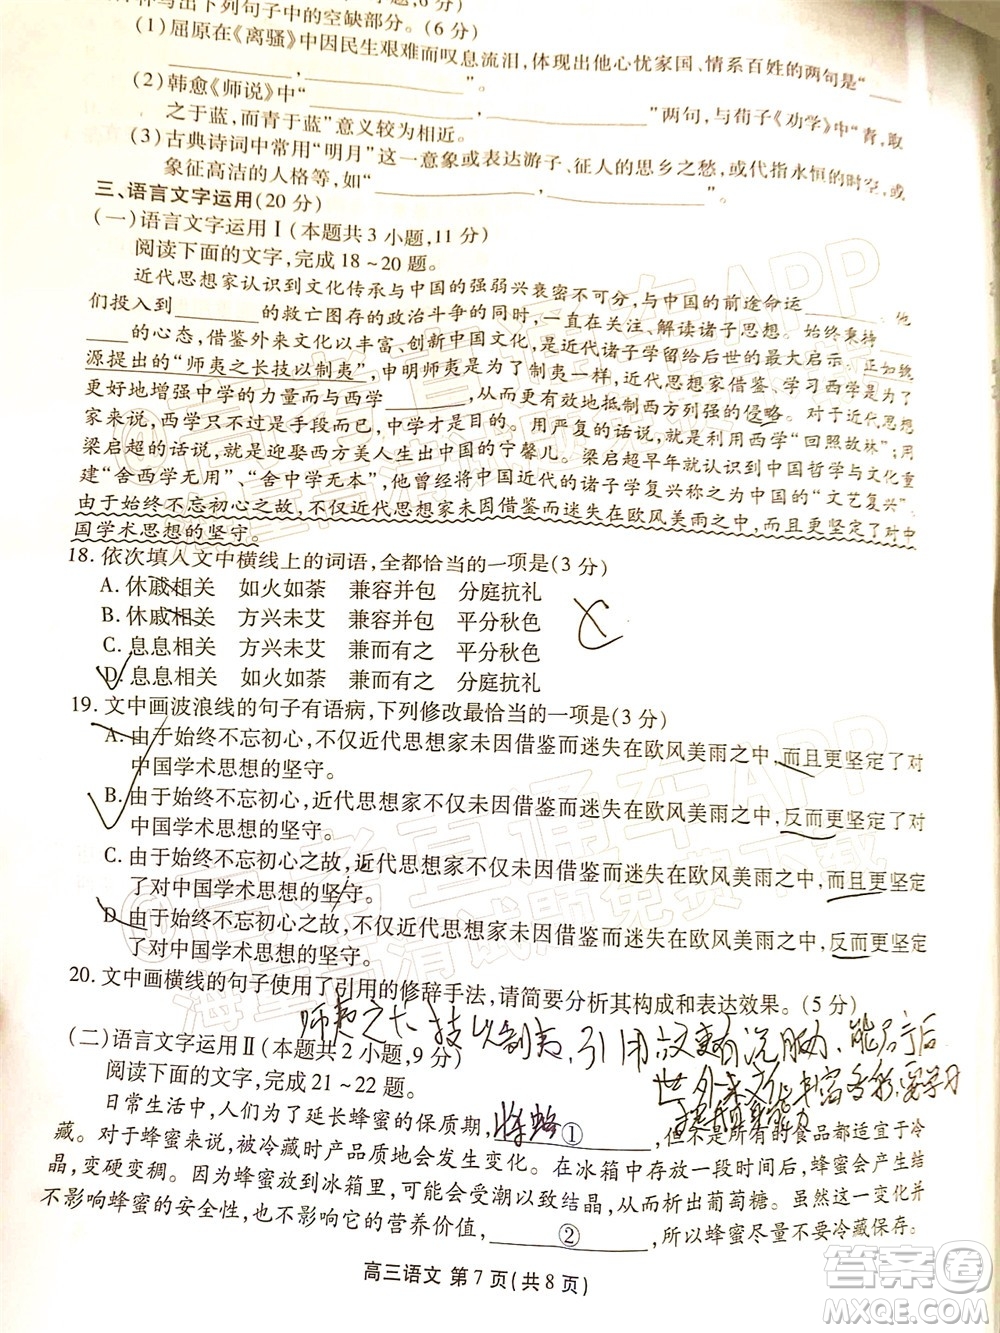 补写出下列句子中的空缺部分。(6分)
(1)屈原在《离骚》中因民生艰难而叹息流泪,体现出他心忧家国、情系百姓的两句是“
(2)韩愈《师说》中“ , ”两句,与荀子《劝学》中“青,取
之于蓝,而青于蓝”意义较为相近。
(3)古典诗词中常用“明月”这一意象或表达游子、征人的思乡之愁,或代指永恒的时空,或
象征高洁的人格等,如“ , ”。
三、语言文字运用(20分)
(一)语言文字运用Ⅰ(本题共3小题,11分)
阅读下面的文字,完成18~20题。
近代思想家认识到文化传承与中国的强弱兴衰密不可分,与中国的前途命运 。他
们投入到 的救亡图存的政治斗争的同时,一直在关注、解读诸子思想。始终秉持
的心态,借鉴外来文化以丰富、创新中国文化,是近代诸子学留给后世的最大启示。正如魏
源提出的“师夷之长技以制夷”,申明师夷是为了制夷一样,近代思想家借鉴、学习西学是为了
更好地增强中学的力量而与西学 ,进而更加有效地抵制西方列强的侵略。对于近代思想
家来说,西学只不过是手段而已,中学才是目的。用严复的话说,就是利用西学“回照故林”;用
梁启超的话说,就是迎娶西方美人生出中国的宁馨儿。梁启超早年就认识到中国哲学与文化重
建“舍西学无用”、“舍中学无本”,他曾经将中国近代的诸子学复兴称为中国的“文艺复兴”。
由于始终不忘初心之故,不仅近代思想家没有因借鉴而迷失在欧风美雨之中,而且更坚定了中
国学术思想的坚守。
18.依次填入文中横线上的词语,全都恰当的一项是(3分)
A.休戚相关 如火如荼 兼容并包 分庭抗礼
B.休戚相关 方兴未艾 兼容并包 平分秋色
C.息息相关 方兴未艾 兼而有之 平分秋色
D.息息相关 如火如荼 兼而有之 分庭抗礼
19.文中画波浪线的句子有语病,下列修改最恰当的一项是(3分)
A.由于始终不忘初心,不仅近代思想家未因借鉴而迷失在欧风美雨之中,而且更坚定了对
中国学术思想的坚守。
B.由于始终不忘初心,近代思想家不仅未因借鉴而迷失在欧风美雨之中,反而更坚定了对
中国学术思想的坚守。
C.由于始终不忘初心之故,近代思想家不仅未因借鉴而迷失在欧风美雨之中,而且更坚定
了对中国学术思想的坚守。
D.由于始终不忘初心之故,不仅近代思想家未因借鉴而迷失在欧风美雨之中,反而更坚定
了对中国学术思想的坚守。
20.文中画横线的句子使用了引用的修辞手法,请简要分析其构成和表达效果。(5分)
师夷之长技以制夷,引用
(二)语言文字运用Ⅱ(本题共2小题,9分)
阅读下面的文字,完成21~22题。
日常生活中,人们为了延长蜂蜜的保质期, ① ,但不是所有的食品都适宜于冷
藏。对于蜂蜜来说,被冷藏时产品质地会发生变化。在冰箱中存放一段时间后,蜂蜜会产生结
晶,变硬变稠。因为蜂蜜放到冰箱里,可能会受潮以致结晶,从而析出葡萄糖。虽然这一变化并
不影响蜂蜜的安全性,也不影响它的营养价值, ② ,所以蜂蜜尽量不要冷藏保存。
高三语文 第7页(共8页)
答案圈
MXQE.COM